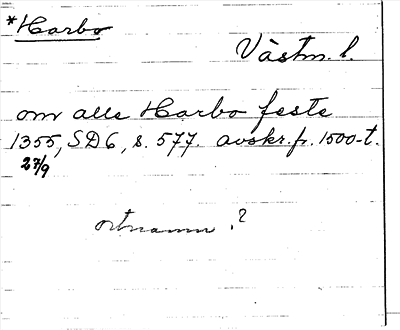 *Harbo
Västm. l.
om alle Harbo feste
1355, SD6, s. 577. avskr. fr. 1500-t.
27/9
ortnamn?